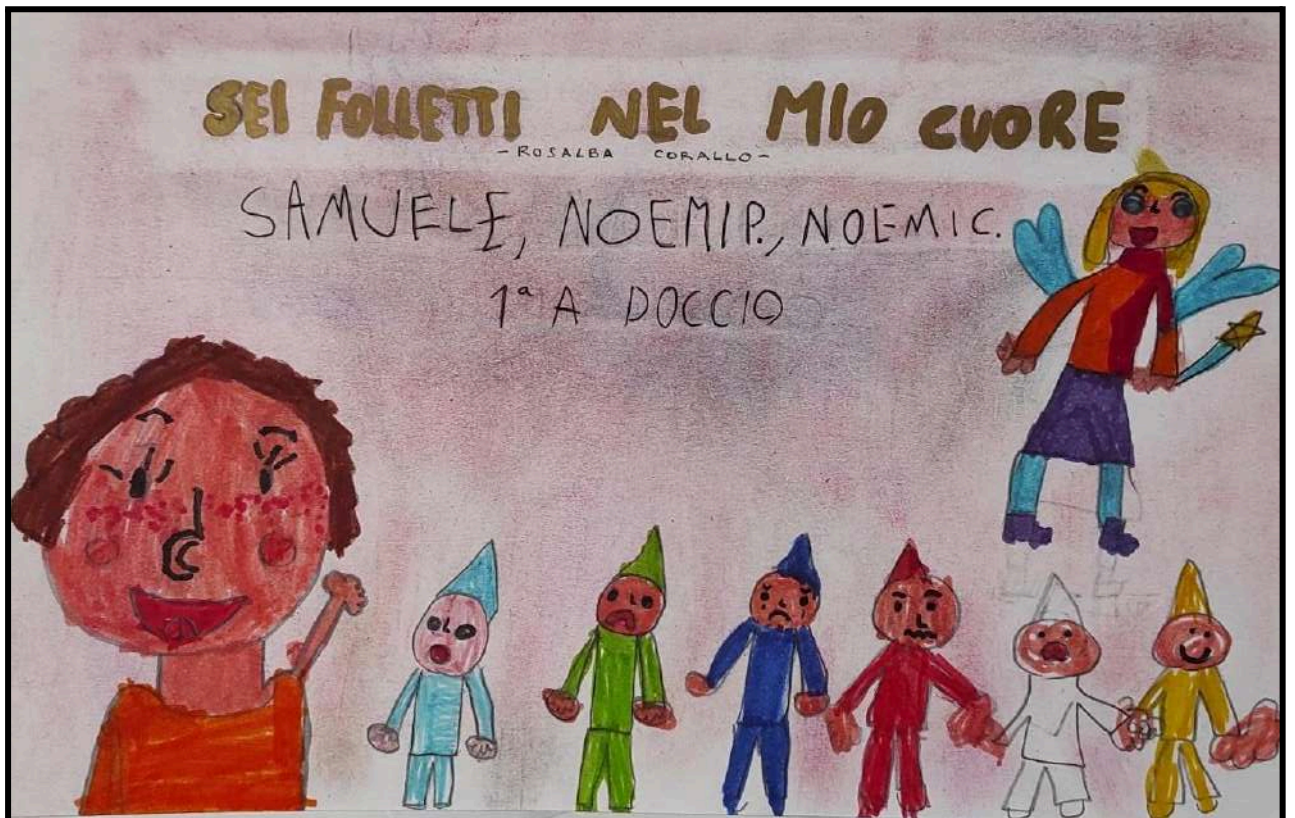 SEI FOLLETTI NEL MIO CUORE
-ROSALBA CORALLO-
SAMUELE, NOEMI P., NOEMI C.
1ª A DOCCIO